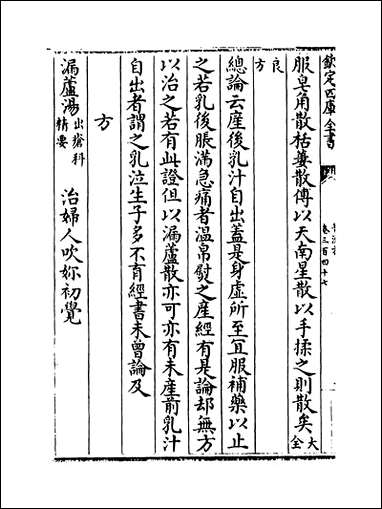 欽定四庫全書
卷三百四十七
服皂角散栝蔞散傅以天南星散以手揉之則散矣大全
良方
總論云産後乳汁自出蓋是身虛所至宜服補藥以止
之若乳後脹滿急痛者温帛熨之産經有是論却無方
以治之若有此證但以漏蘆散亦可亦有未産前乳汁
自出者謂之乳泣生子多不育經書未曾論及
方
漏蘆湯出瘡科精要 治婦人吹妳初覺